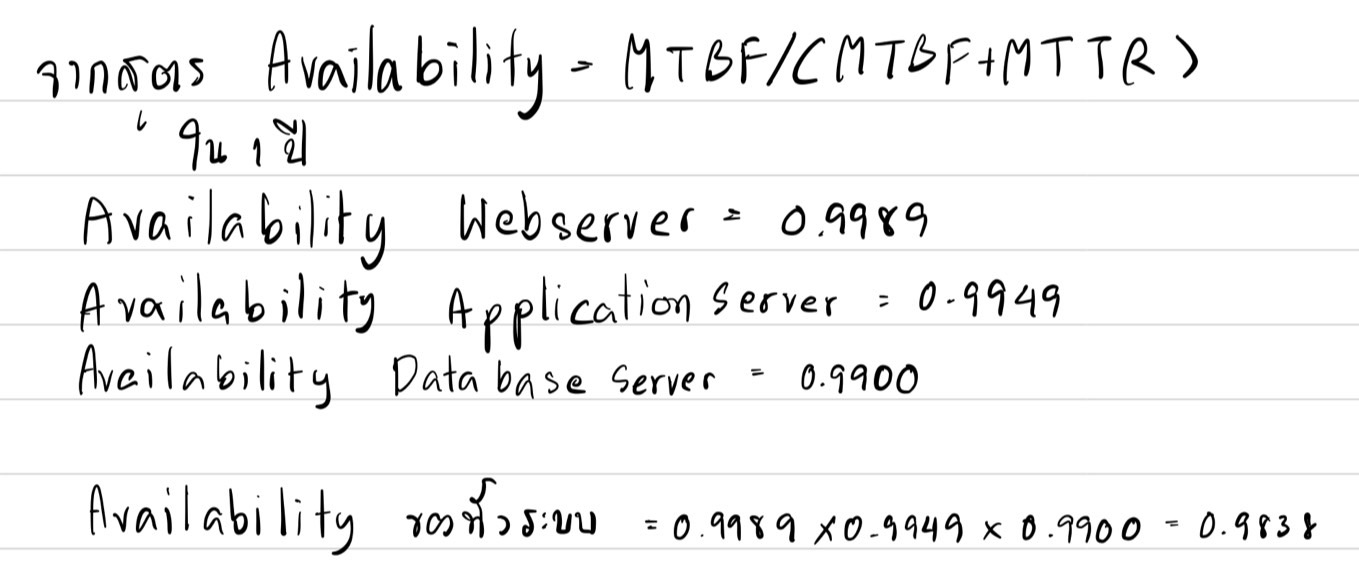 จากสูตร Availability = MTBF/(MTBF+MTTR)
ใน 1 ปี
Availability Webserver = 0.9989
Availability Application Server = 0.9949
Availability Database Server = 0.9900
Availability ของทั้งระบบ = 0.9989 × 0.9949 × 0.9900 = 0.9838